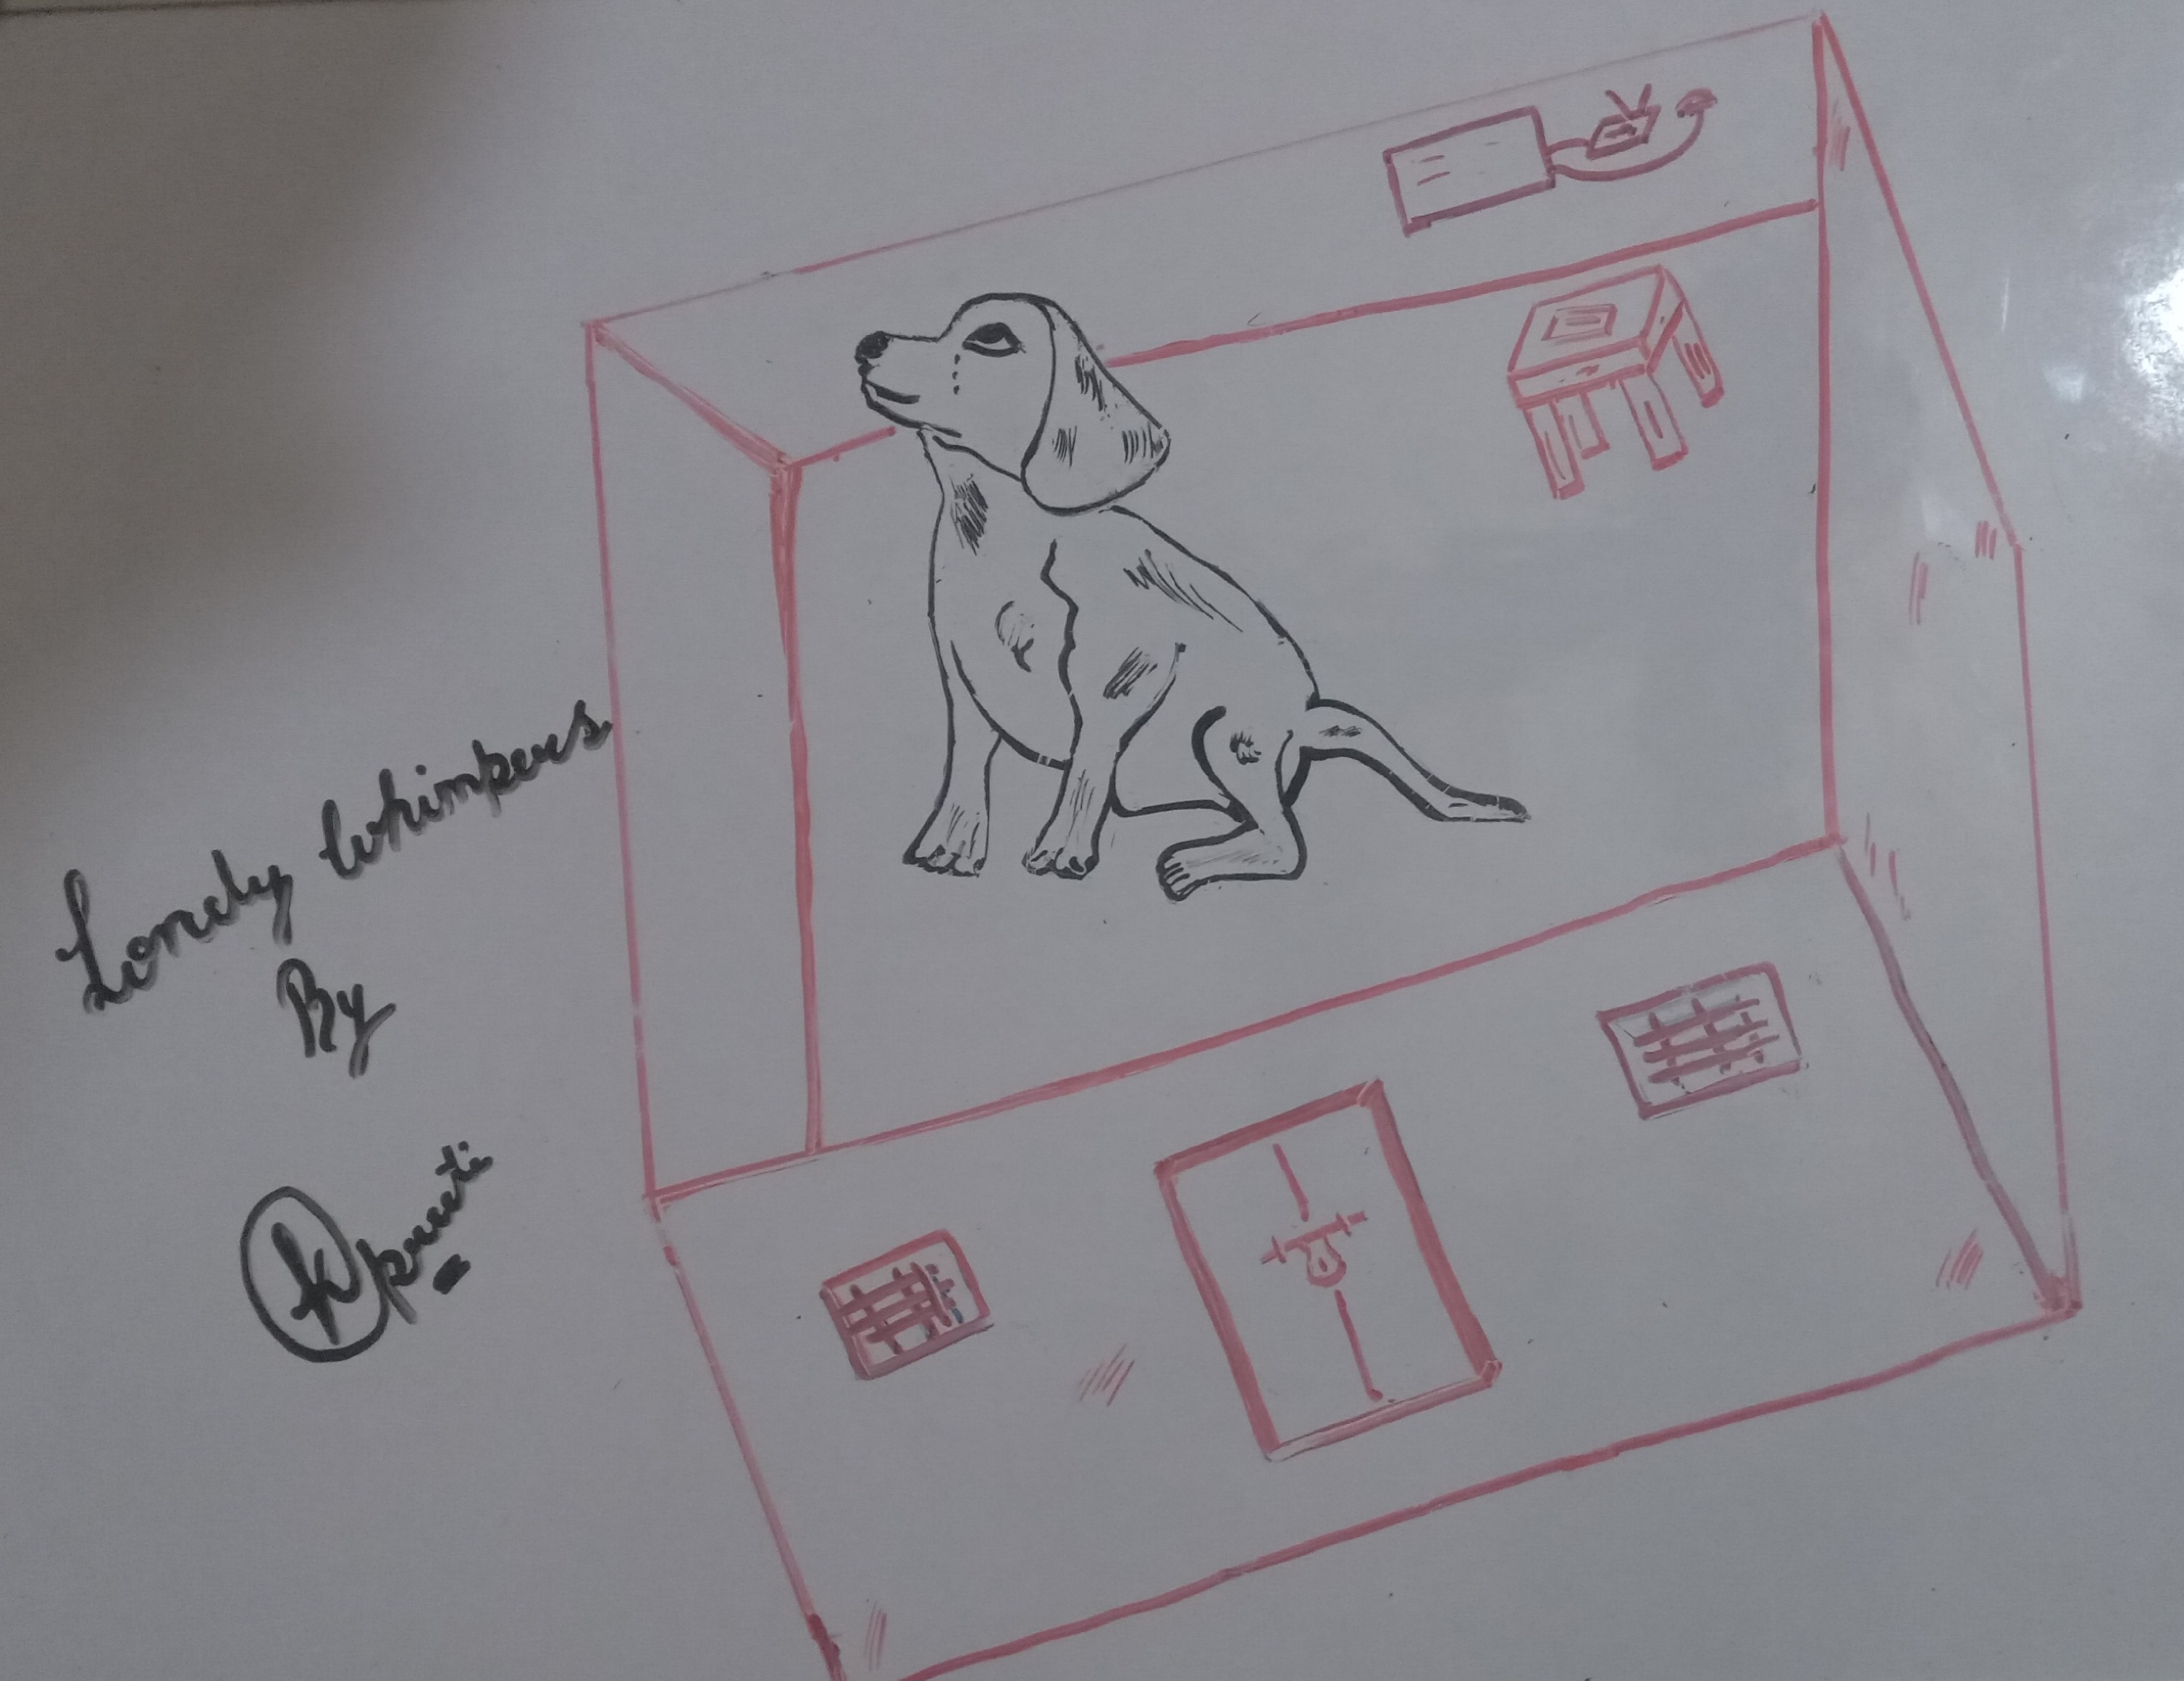 Lonely Whimpers
By
Kpruti